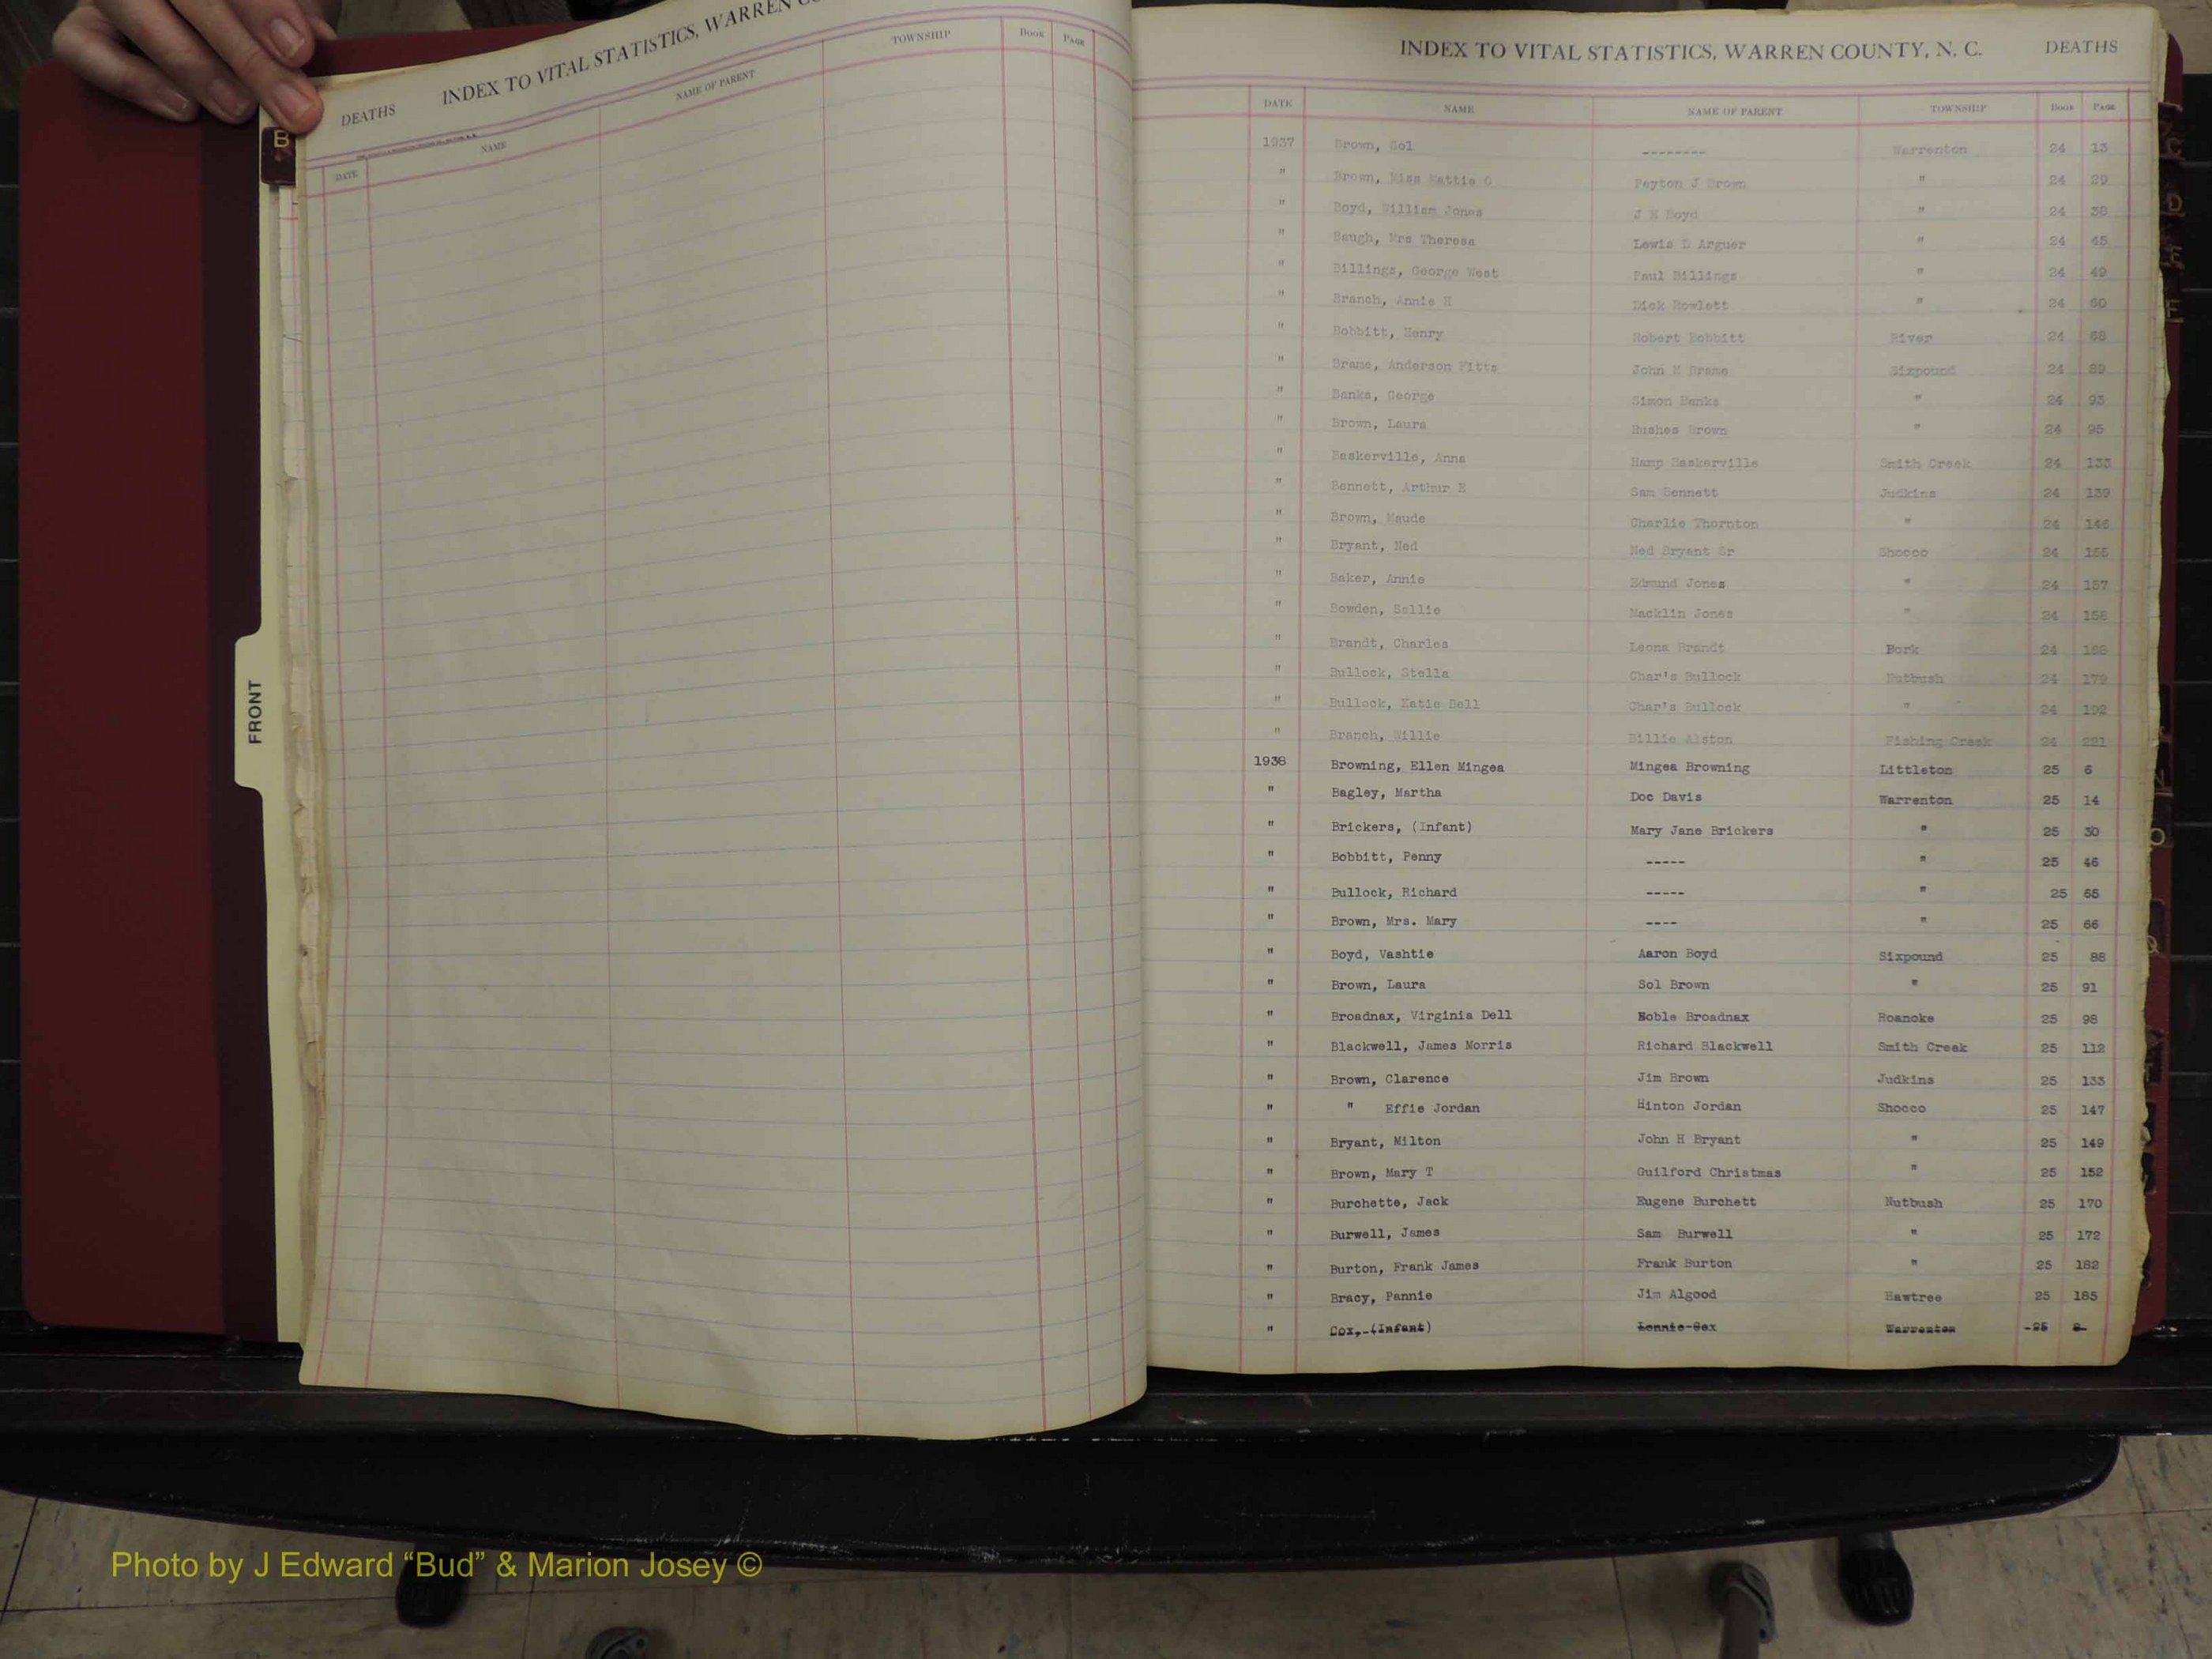 DEATHS INDEX TO VITAL STATISTICS, WARREN
DATE NAME NAME OF PARENT TOWNSHIP BOOK PAGE
B
FRONT
INDEX TO VITAL STATISTICS, WARREN COUNTY, N. C. DEATHS
DATE NAME NAME OF PARENT TOWNSHIP BOOK PAGE
1937 Brown, Sol -------- Warrenton 24 13
" Brown, Miss Mattie O Peyton J Brown " 24 29
" Boyd, William Jones J E Boyd " 24 38
" Baugh, Mrs Theresa Lewis L Arguer " 24 45
" Billings, George West Paul Billings " 24 49
" Branch, Annie H Dick Rowlett " 24 60
" Bobbitt, Henry Robert Bobbitt River 24 68
" Brame, Anderson Fitts John M Brame Sixpound 24 89
" Banks, George Simon Banks " 24 93
" Brown, Laura Hushes Brown " 24 95
" Baskerville, Anna Hamp Baskerville Smith Creek 24 133
" Bennett, Arthur E Sam Bennett Judkins 24 139
" Brown, Maude Charlie Thornton " 24 146
" Bryant, Ned Ned Bryant Sr Shocco 24 155
" Baker, Annie Edmund Jones " 24 157
" Bowden, Sallie Macklin Jones " 24 158
" Brandt, Charles Leona Brandt Fork 24 168
" Bullock, Stella Char's Bullock Nutbush 24 179
" Bullock, Katie Dell Char's Bullock " 24 192
" Branch, Willie Billie Alston Fishing Creek 24 221
1938 Browning, Ellen Mingea Mingea Browning Littleton 25 6
" Bagley, Martha Doc Davis Warrenton 25 14
" Brickers, (Infant) Mary Jane Brickers " 25 30
" Bobbitt, Penny ----- " 25 46
" Bullock, Richard ----- " 25 65
" Brown, Mrs. Mary ---- " 25 66
" Boyd, Vashtie Aaron Boyd Sixpound 25 88
" Brown, Laura Sol Brown " 25 91
" Broadnax, Virginia Dell Noble Broadnax Roanoke 25 98
" Blackwell, James Morris Richard Blackwell Smith Creek 25 112
" Brown, Clarence Jim Brown Judkins 25 133
" " Effie Jordan Hinton Jordan Shocco 25 147
" Bryant, Milton John H Bryant " 25 149
" Brown, Mary T Guilford Christmas " 25 152
" Burchette, Jack Eugene Burchett Nutbush 25 170
" Burwell, James Sam Burwell " 25 172
" Burton, Frank James Frank Burton " 25 182
" Bracy, Pannie Jim Algood Hawtree 25 185
" Cox,-(Infant) Lonnie-Cox Warrenton -25 2-
Photo by J Edward “Bud” & Marion Josey ©